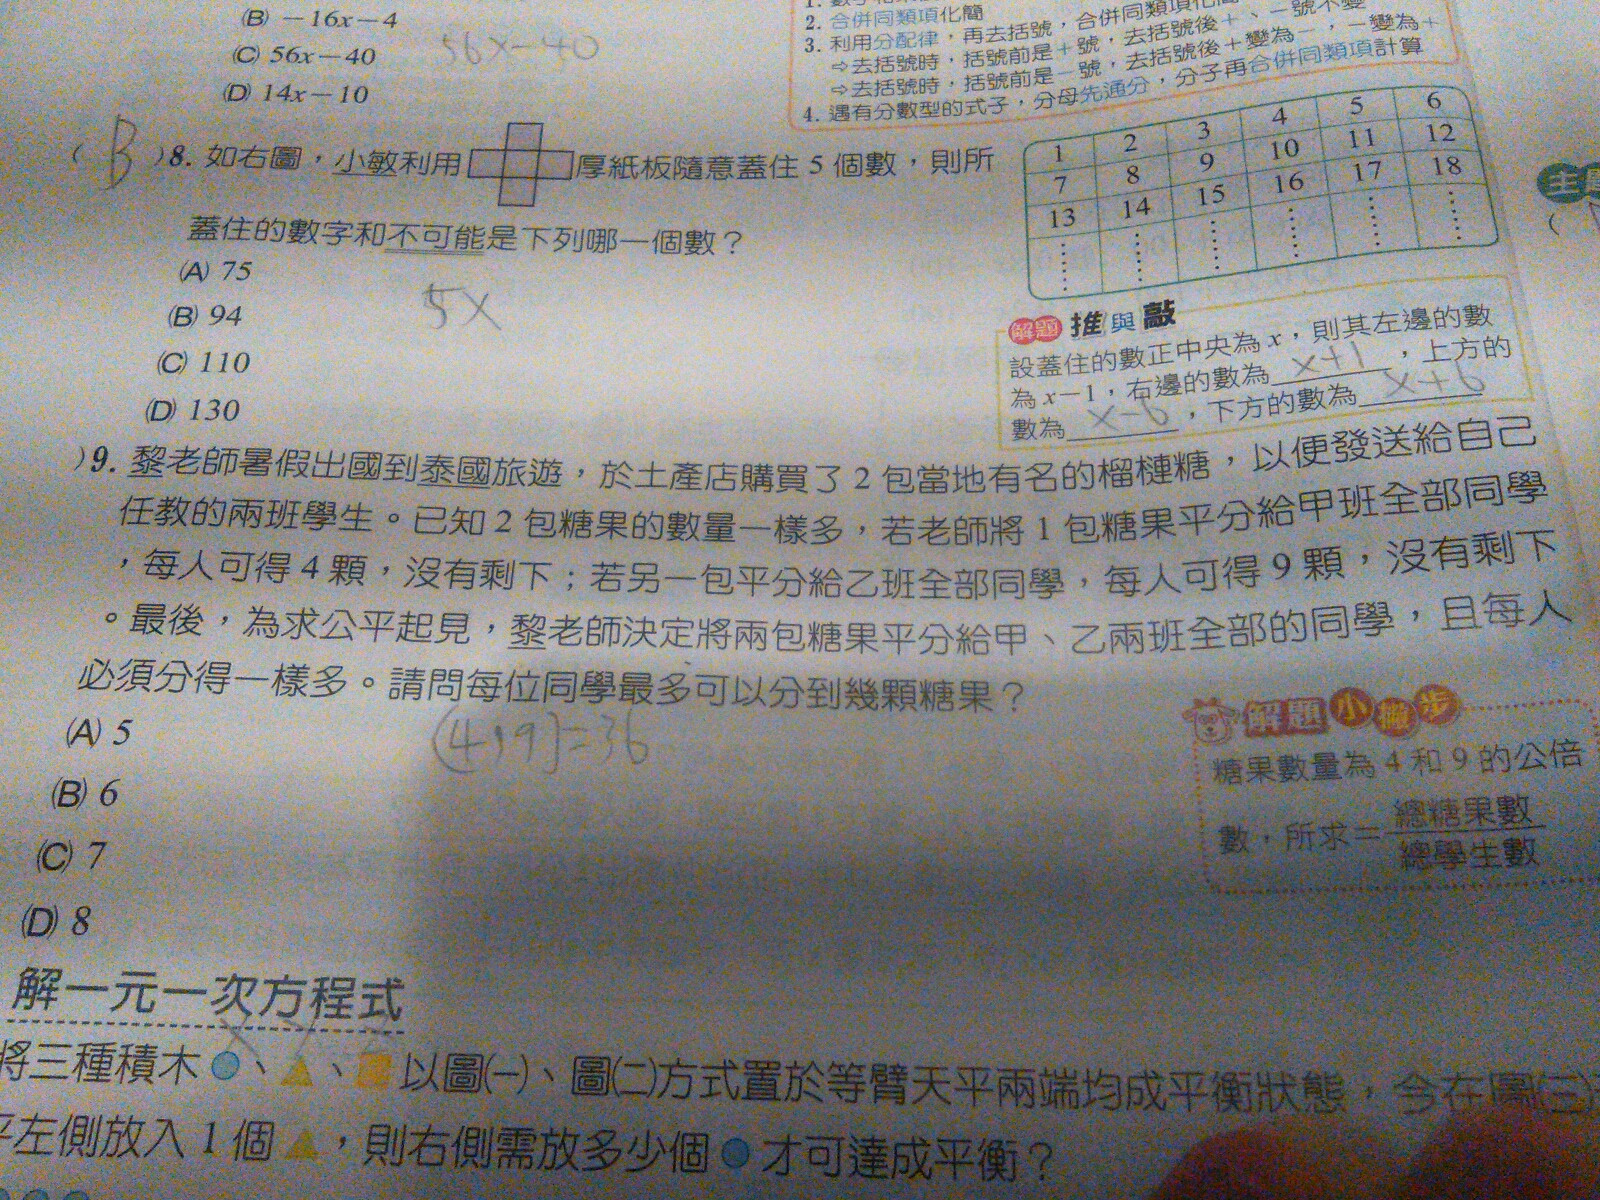 (B) －16x－4
(C) 56x－40
56x－40
(D) 14x－10
2. 合併同類項化簡
3. 利用分配律，再去括號，合併同類項化簡
⇨去括號時，括號前是＋號，去括號後＋、－號不變
⇨去括號時，括號前是－號，去括號後＋變為－，－變為＋
4. 遇有分數型的式子，分母先通分，分子再合併同類項計算
1 2 3 4 5 6
7 8 9 10 11 12
13 14 15 16 17 18
( B )8. 如右圖，小敏利用 厚紙板隨意蓋住 5 個數，則所
蓋住的數字和不可能是下列哪一個數？
(A) 75
(B) 94
(C) 110
(D) 130
5x
解題 推與敲
設蓋住的數正中央為 x，則其左邊的數
為 x－1，右邊的數為 x+1 ，上方的
數為 x－6 ，下方的數為 x+6
)9. 黎老師暑假出國到泰國旅遊，於土產店購買了 2 包當地有名的榴槤糖，以便發送給自己
任教的兩班學生。已知 2 包糖果的數量一樣多，若老師將 1 包糖果平分給甲班全部同學
，每人可得 4 顆，沒有剩下；若另一包平分給乙班全部同學，每人可得 9 顆，沒有剩下
。最後，為求公平起見，黎老師決定將兩包糖果平分給甲、乙兩班全部的同學，且每人
必須分得一樣多。請問每位同學最多可以分到幾顆糖果？
[4,9]=36
(A) 5
(B) 6
(C) 7
(D) 8
解題小撇步
糖果數量為 4 和 9 的公倍
數，所求＝總糖果數
總學生數
解一元一次方程式
將三種積木 、 、 以圖(一)、圖(二)方式置於等臂天平兩端均成平衡狀態，今在圖(三)
左側放入 1 個 ，則右側需放多少個 才可達成平衡？